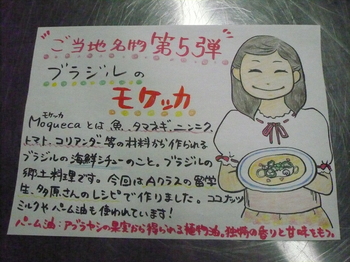 "ご当地名物 第5弾"
ブラジルの
モケッカ
モケッカ
Moquecaとは、魚、タマネギ、ニンニク、
トマト、コリアンダー等の材料から作られる
ブラジルの海鮮シチューのこと。ブラジルの
郷土料理です。今回はAクラスの留学
生、多原さんのレシピで作りました。ココナッツ
ミルクやパーム油も使われています!
パーム油:アブラヤシの果実から得られる植物油。独特の香りと甘味をもつ。